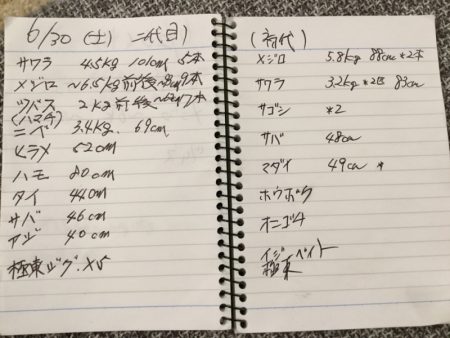 6/30(土) 二代目)
サワラ 4.5kg 101cm 5本
メジロ ~6.5kg前後
ツバス 2kg前後
(ハマチ)
ニベ 3.4kg. 69cm.
ヒラメ 52cm
ハモ 80cm
タイ 44cm
サバ 46cm
アジ 40cm
極東ジグ.XV
(初代)
メジロ 5.8kg 88cm*2本
サワラ 3.2kg*2回 83cm
サゴシ *2
サバ 48cm
マダイ 49cm *
ホウボウ
オニゴチ
ベイト